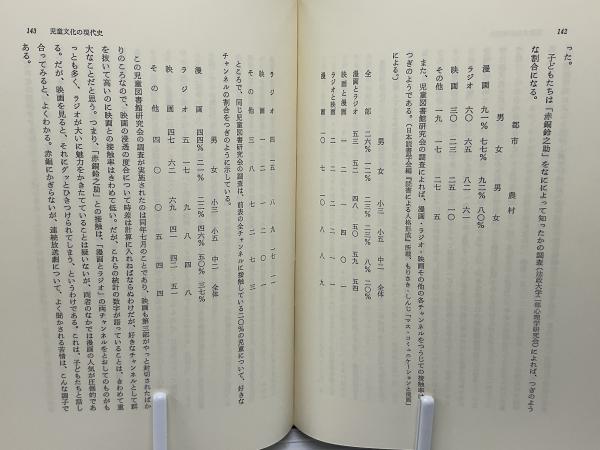 142
った。
子どもたちは『赤銅鈴之助』をなにによって知ったかの調査(法政大学二部心理学研究会)によれば、つぎのよう
な割合になる。
都市 農村
男 女 男 女
漫画 九一% 七七% 九二% 八〇%
ラジオ 六〇 六五
映画 三〇
その他 一九 一七
また、児童図書館研究会の調査によれば、漫画・ラジオ・映画その他の各チャンネルをつうじての接触率は
つぎのようである。(日本読書学会編『読書による人格形成』所載、もりさき・しんじ『マス・コミュニケーションと漫画』
による。)
男 女 小三 小五 中二 全体
全部 二六% 一%
漫画とラジオ 五三 五二 四八 五九 五四
映画と漫画
ラジオと映画
漫画 一〇 七 一〇 八 八 九
143 児童文化の現代史
ラジオ 四 一五
映画
その他 三 八 七 二 七
ところで、同じ児童図書館研究会の調査は、前表の全チャンネルに接触している二〇%の児童について、好きな
チャンネルの割合をつぎのように示している。
男 女 小三 小五 中二 全体
漫画 四四% 二一% 三七%
ラジオ 五 一七 九 八 八
映画 四七 六二 六九 四一 四二 五一
その他 四 〇 〇 五 四 四
この児童図書館研究会の調査が実施されたのは同年七月のことであり、映画も第三部がやっと封切されたばか
りのころなので、映画の浸透の度合について時差は計算に入れねばならぬわけだが、好きなチャンネルとして群
を抜いて高いのに映画との接触率はきわめて低い。だが、これらの統計の数字が語っていることは、きわめて重
大なことだと思う。つまり、『赤銅鈴之助』との接触は、「漫画とラジオ」の両チャンネルをとおしてのものがも
っとも多く、ラジオが大いに魅力をかきたてていることは疑いないが、両者のなかでは漫画の人気が圧倒的であ
る。だが、映画を見ると、それにグッとひきつけられてしまう、というわけである。これは、子どもたちと話し
合ってみると、よくわかる。赤銅にかぎらないが、連続放送劇について、よく聞かされる苦情は、こんな調子で
ある。